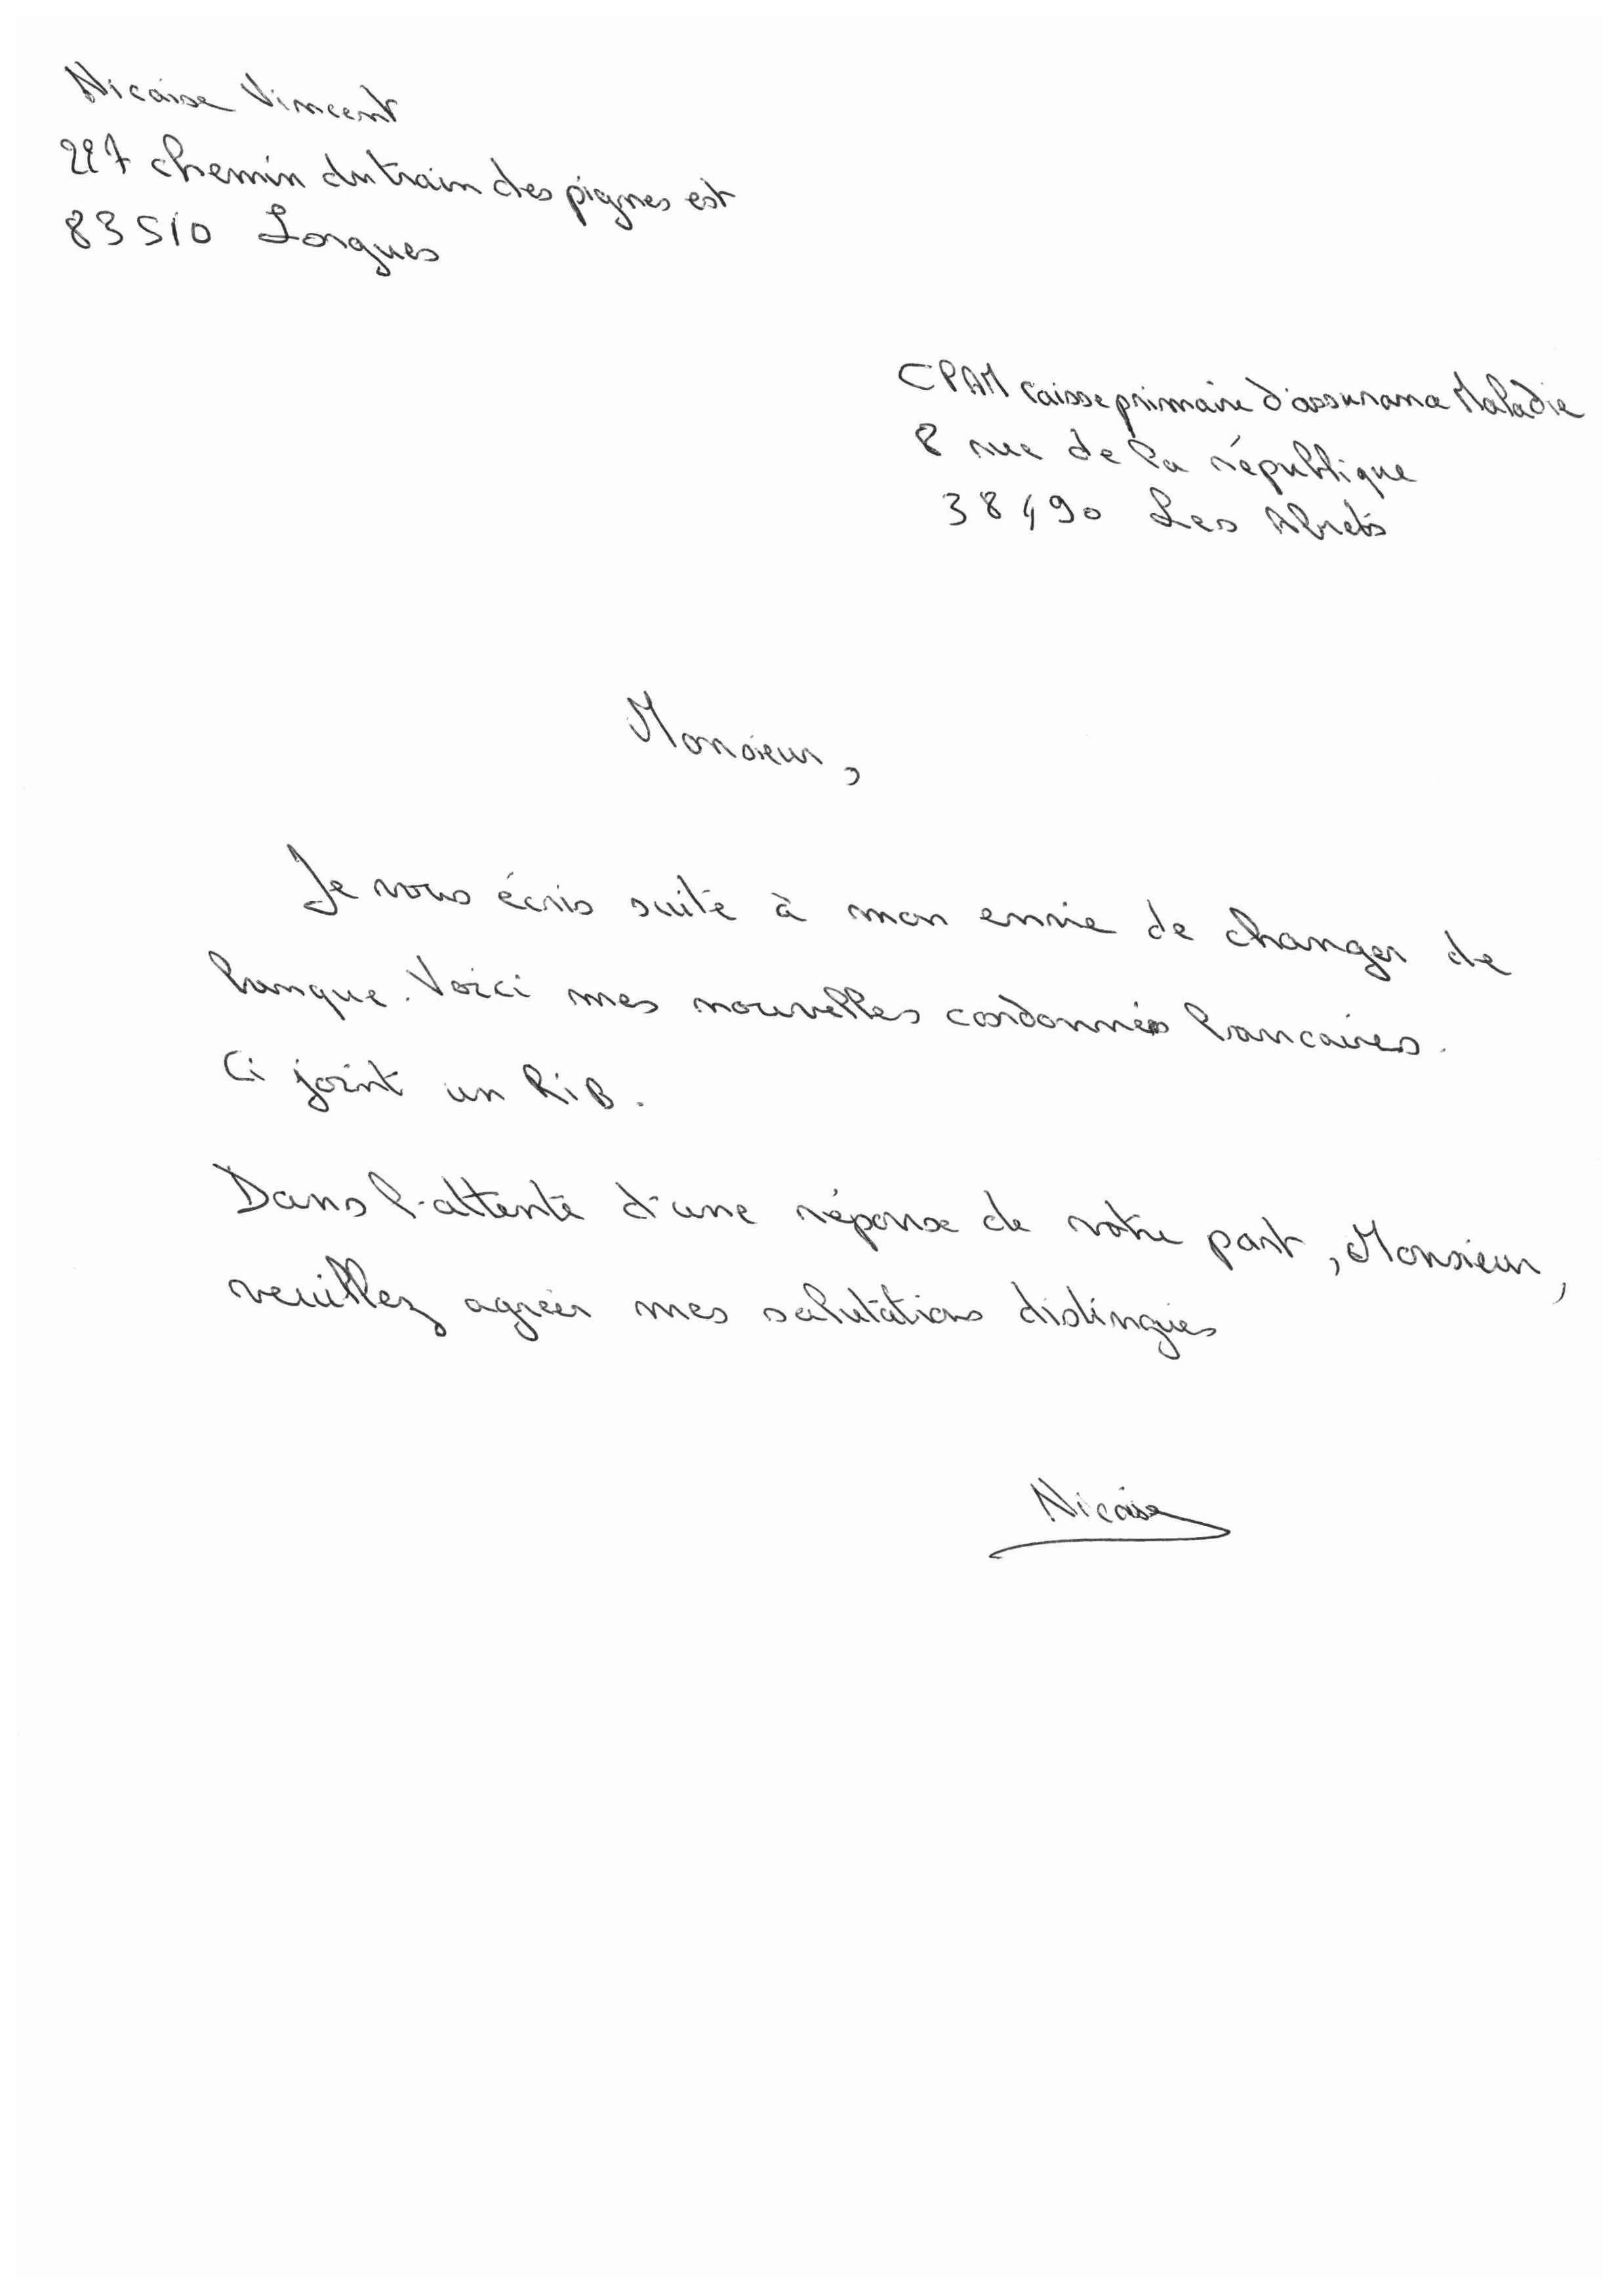 Nicaise Vincent
227 chemin du train des pignes est
83510 Lorgues
CPAM Caisse primaire d'assurance Maladie
8 rue de la république
38490 Les Abrets
Monsieur,
Je vous écris suite à mon envie de changer de
banque. Voici mes nouvelles cordonnées bancaires.
Ci joint un RiB.
Dans l'attente d'une réponse de votre part, Monsieur,
veuillez agréer mes salutations distingues
Nicaise